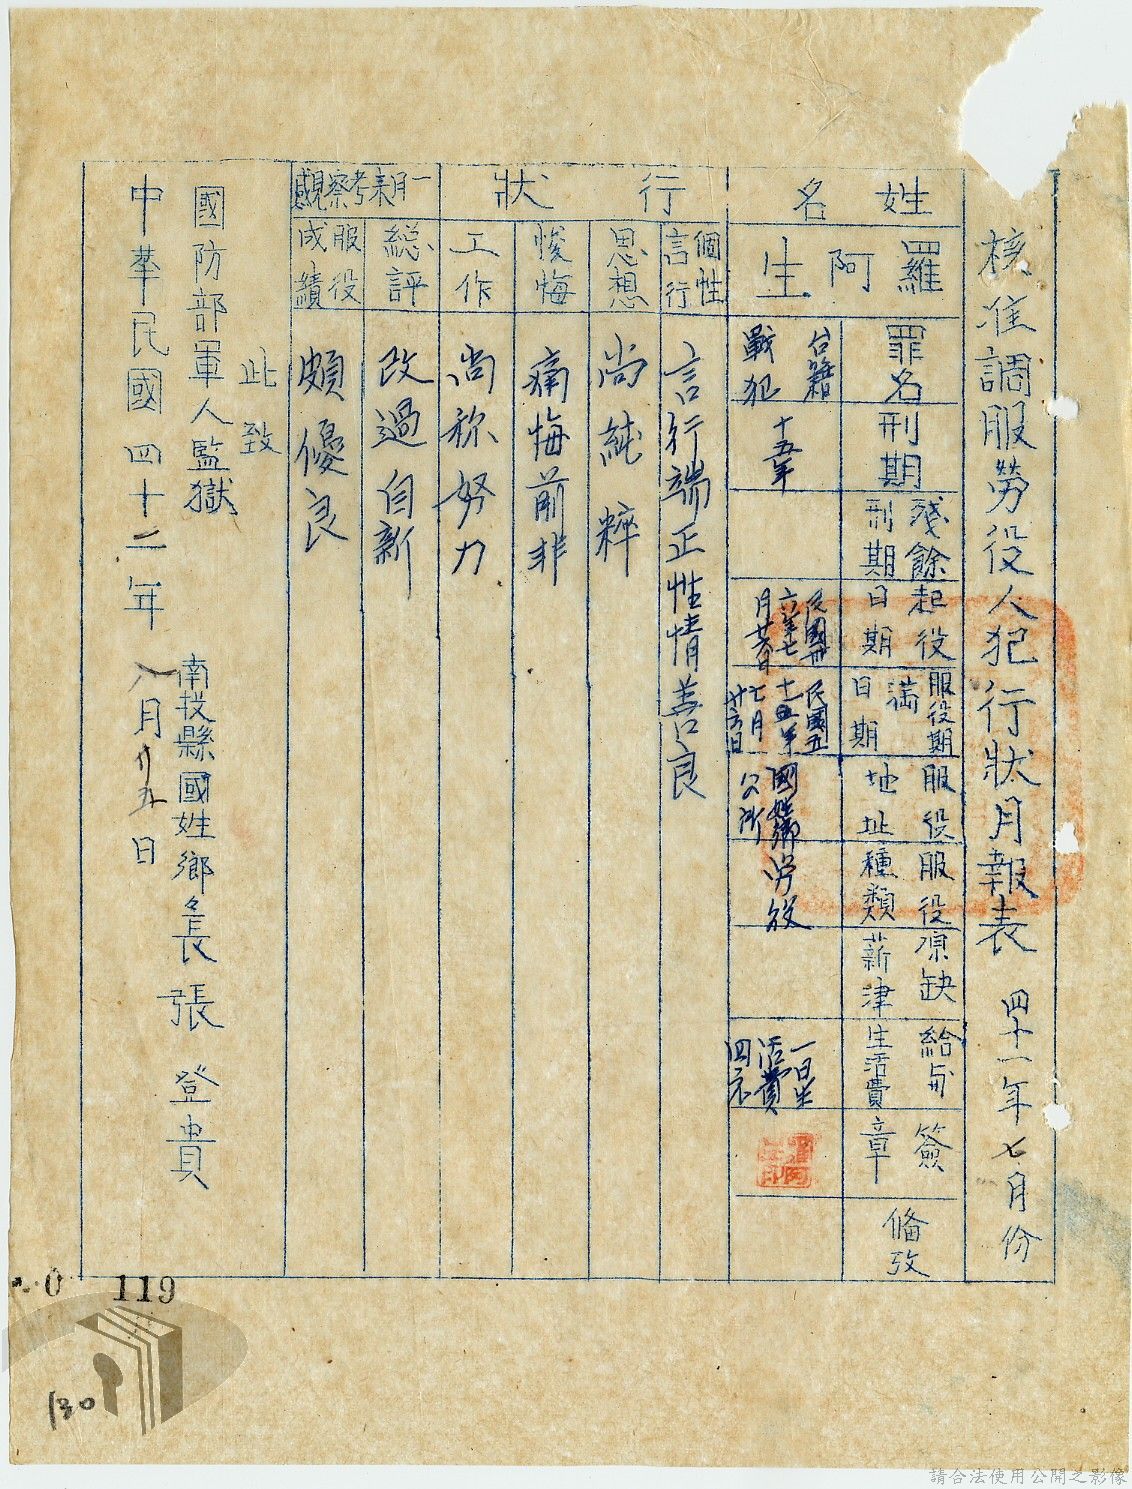 核准調服勞役人犯行狀月報表 四十一年七月份
姓名 羅阿生
罪名 台籍戰犯
刑期 十五年
殘餘刑期
起役日期 民國卅六年七月廿六日
服役期滿日期 民國五十一年七月廿六日
服役地址 國姓鄉公所
服役種類 勞役
原缺薪津
給與生活費 一日生活費四元
簽章 羅阿生印
備攷
行狀
個性言行 言行端正性情善良
思想 尚純粹
悛悔 痛悔前非
工作 尚称努力
一月來考察觀感
総評 改過自新
服役成績 頗優良
此致
國防部軍人監獄
南投縣國姓鄉長 張登貴
中華民國四十二年八月廿五日
0 119
130
請合法使用公開之影像